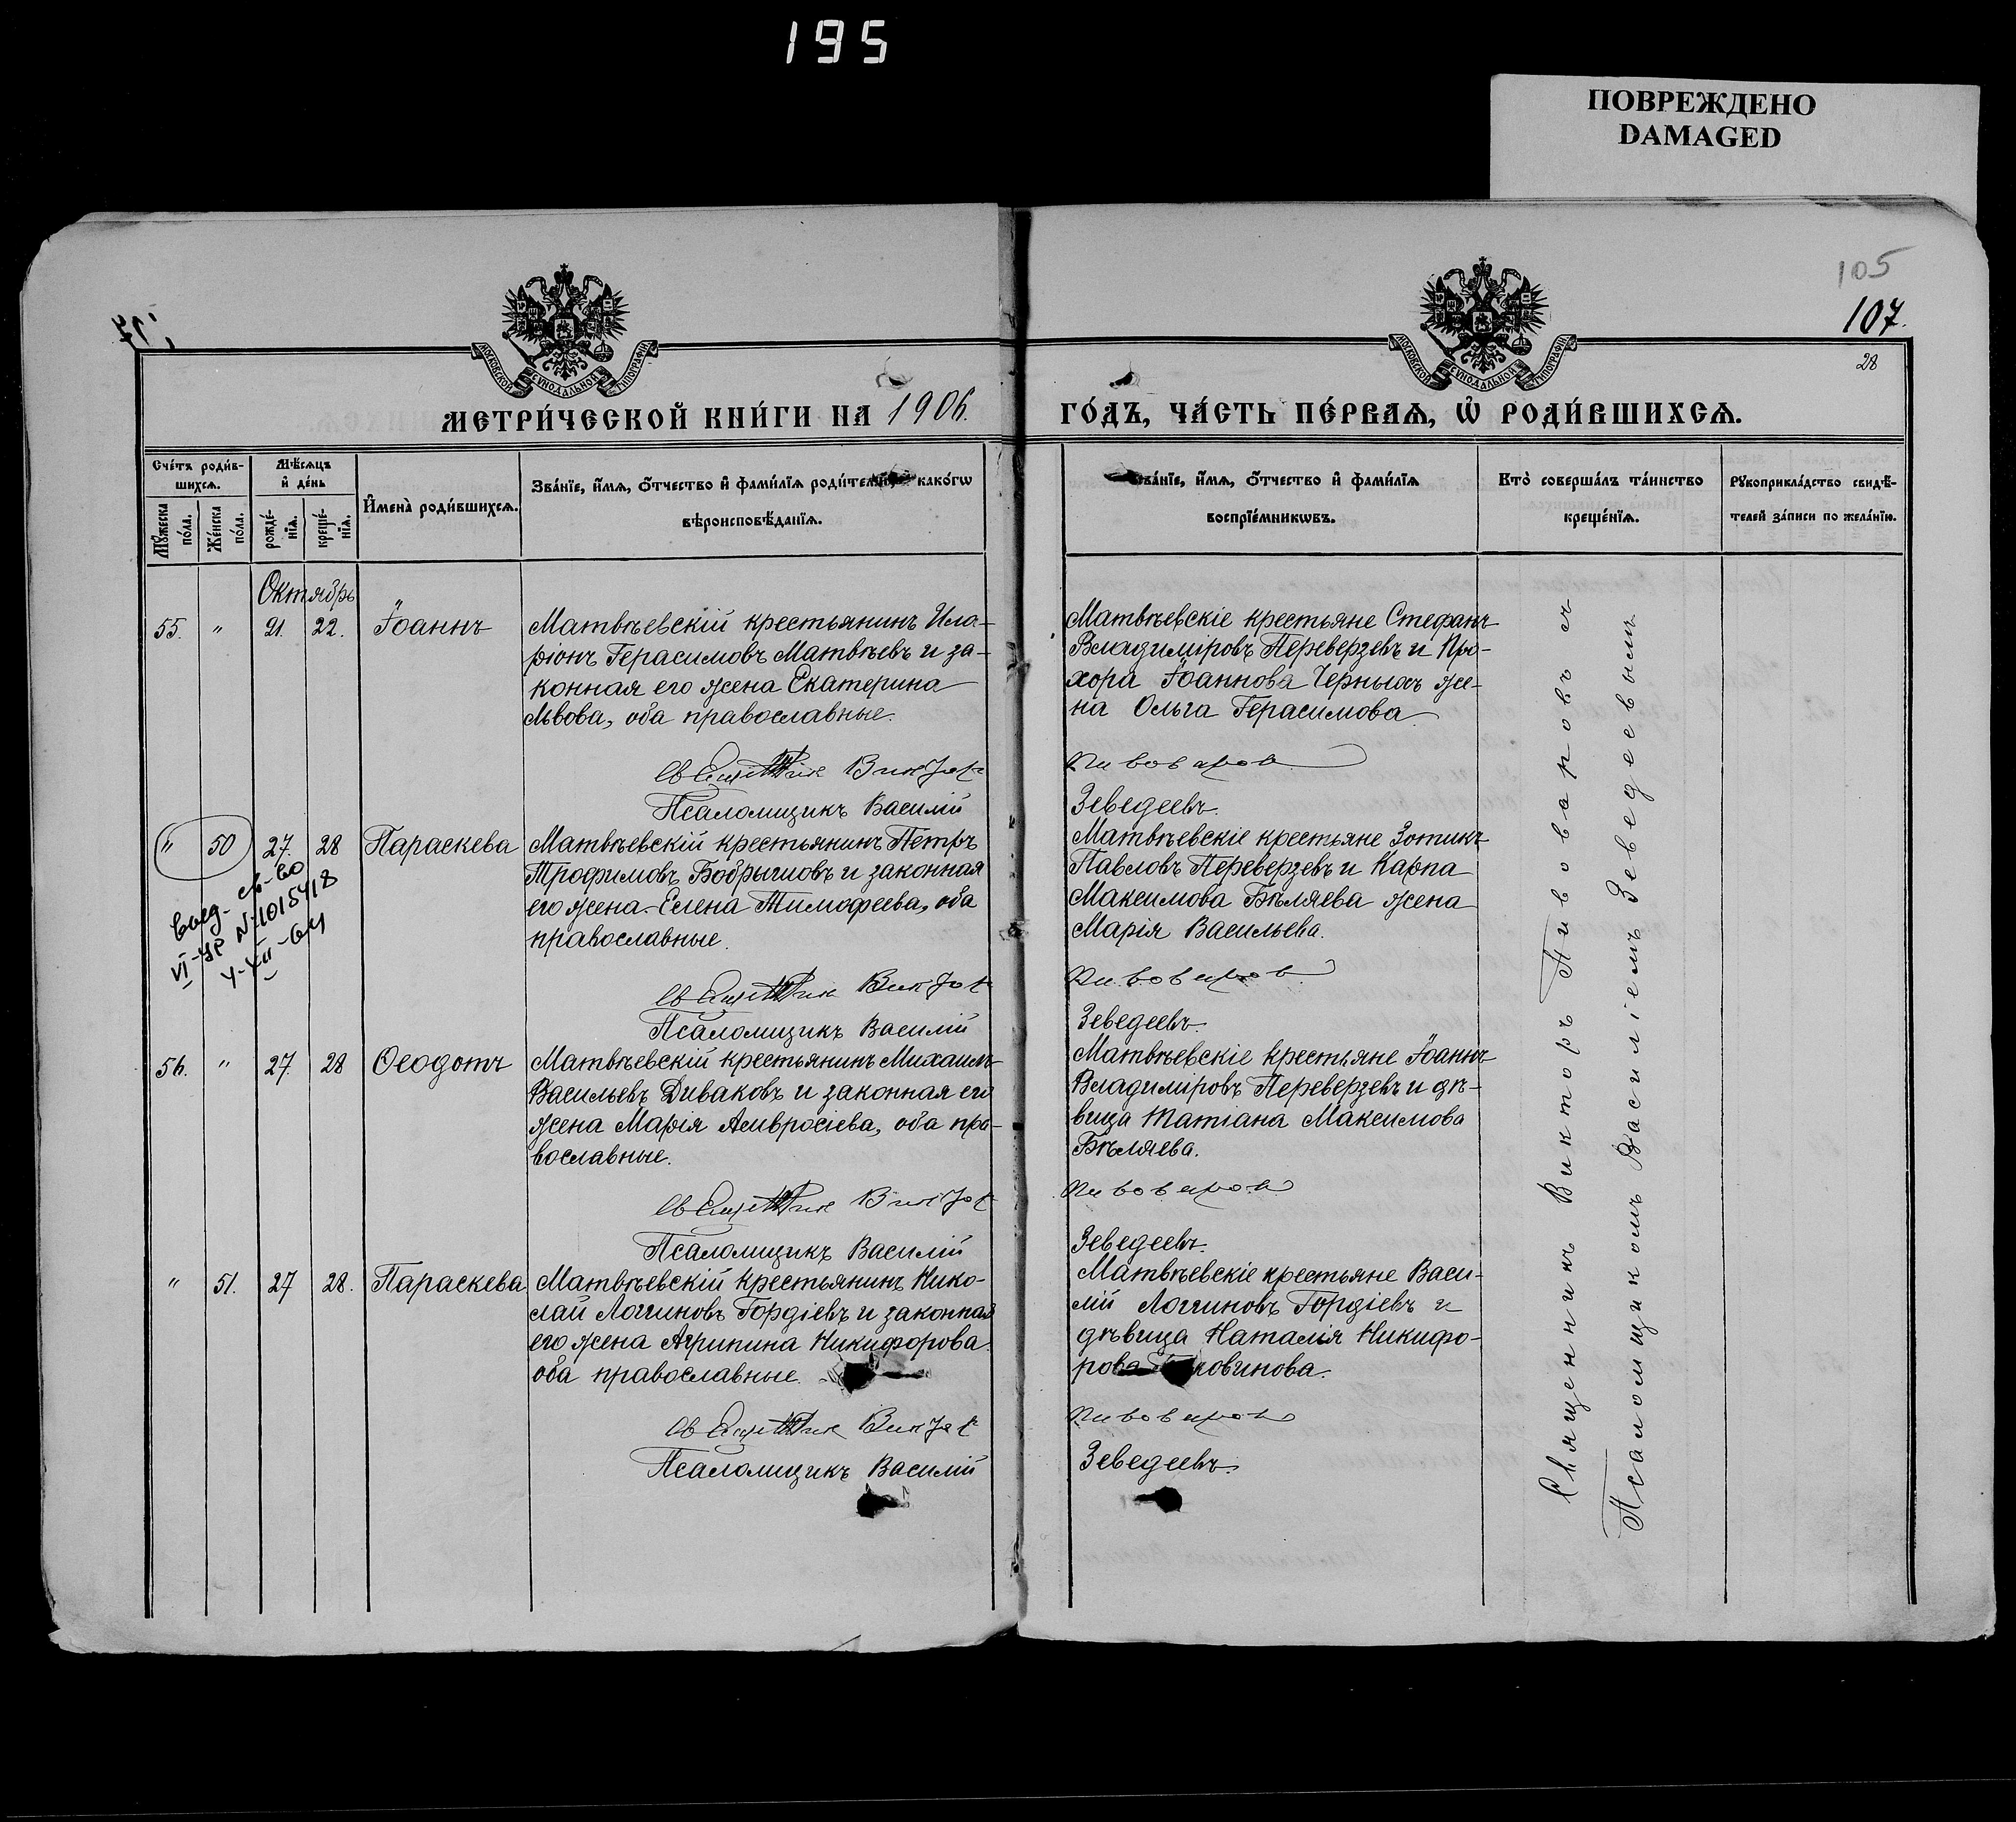 195
ПОВРЕЖДЕНО
DAMAGED
105
107.
28
МОСКОВСКОЙ СѴНОДАЛЬНОЙ ТИПОГРАФІИ
МОСКОВСКОЙ СѴНОДАЛЬНОЙ ТИПОГРАФІИ
МЕТРИ́ЧЕСКОЙ КНИ́ГИ НА 1906.
ГО́ДЪ, ЧА́СТЬ ПЕ́РВАѦ, Ѡ РОДИ́ВШИХСѦ.
Сче́тъ роди́в-
шихсѧ.
Мѣ́сѧцъ
и де́нь
Мꙋ́жеска
по́ла.
Же́нска
по́ла.
рожде́-
нїѧ.
креще́-
нїѧ.
Имена̀ роди́вшихсѧ.
Зва́нїе, и́мѧ, о́тчество и фами́лїѧ роди́телей, како́гѡ
вѣроисповѣ́данїѧ.
Зва́нїе, и́мѧ, о́тчество и фами́лїѧ
воспрїе́мникѡвъ.
Кто̀ соверша́лъ та́инство
креще́нїѧ.
Рꙋкоприкла́дство свидѣ́-
телей за́писи по жела́нїю.
Октябрь
55. " 21. 22. Іоаннъ
Матвѣевскій крестьянинъ Ила-
ріонъ Герасимовъ Матвѣевъ и за-
конная его жена Екатерина
Львова, оба православные.
Священникъ Викторъ
Псаломщикъ Василій
Матвѣевскіе крестьяне Стефанъ
Владиміровъ Переверзевъ и Про-
хора Іоаннова Черныхъ же-
на Ольга Герасимова
Пивоваровъ
Зеведеевъ.
" 50 27. 28 Параскева
св-во
VI-ЯР № 1015418
Матвѣевскій крестьянинъ Петръ
Трофимовъ Бобрышовъ и законная
его жена Елена Тимофеева, оба
православные.
Священникъ Викторъ
Псаломщикъ Василій
Матвѣевскіе крестьяне Зотикъ
Павловъ Переверзевъ и Карпа
Максимова Бѣляева жена
Марія Васильева.
Пивоваровъ
Зеведеевъ.
56. " 27. 28 Ѳеодотъ
Матвѣевскій крестьянинъ Михаилъ
Васильевъ Диваковъ и законная его
жена Марія Амвросіева, оба пра-
вославные.
Священникъ Викторъ
Псаломщикъ Василій
Матвѣевскіе крестьяне Іоаннъ
Владиміровъ Переверзевъ и дѣ-
вица Татіана Максимова
Бѣляева.
Пивоваровъ
Зеведеевъ.
" 51. 27 28. Параскева
Матвѣевскій крестьянинъ Нико-
лай Логгиновъ Гордіевъ и законная
его жена Агрипина Никифорова
оба православные.
Священникъ Викторъ
Псаломщикъ Василій
Матвѣевскіе крестьяне Васи-
лій Логгиновъ Гордіевъ и
дѣвица Наталія Никифо-
рова
Пивоваровъ
Зеведеевъ.
Священникъ Викторъ Пивоваровъ съ
Псаломщикомъ Василіемъ Зеведеевымъ